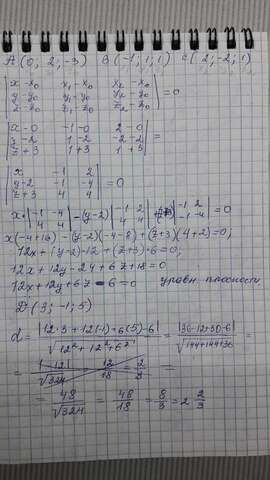 A (0; 2; -3) B (-1; 1; 1) C (2; -2; 1)
| x - x₀ x₁ - x₀ x₂ - x₀ |
| y - y₀ y₁ - y₀ y₂ - y₀ | = 0
| z - z₀ z₁ - z₀ z₂ - z₀ |
| x - 0 -1 - 0 2 - 0 |
| y - 2 1 - 2 -2 - 2 | =
| z + 3 1 + 3 1 + 3 |
| x -1 2 |
| y - 2 -1 -4 | = 0
| z + 3 4 4 |
x · | -1 -4 ; 4 4 | - (y - 2) | -1 2 ; 4 4 | + (z + 3) | -1 2 ; -1 -4 | = 0
x(-4 + 16) - (y - 2)(-4 - 8) + (z + 3)(4 + 2) = 0;
12x + (y - 2) · 12 + (z + 3) · 6 = 0;
12x + 12y - 24 + 6z + 18 = 0
12x + 12y + 6z - 6 = 0 уравн. плоскости
D (3; -1; 5)
d = |12 · 3 + 12(-1) + 6(5) - 6| / √12² + 12² + 6² = |36 - 12 + 30 - 6| / √144 + 144 + 36 =
= 12 / √324 = 12 / 18 = 2 / 3 =
= 48 / √324 = 48 / 18 = 8 / 3 = 2 2/3